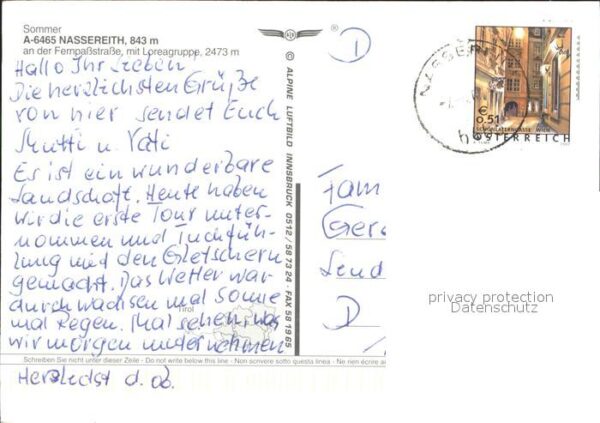 Sommer
A-6465 NASSEREITH, 843 m
an der Fernpaßstraße, mit Loreagruppe, 2473 m
Hallo Ihr Lieben
Die herzlichsten Grüße
von hier sendet Euch
Mutti u. Vati
Es ist ein wunderbare
Landschaft. Heute haben
wir die erste Tour unter-
nommen und Tuchfüh-
lung mit den Gletschern
gemacht. Das Wetter war
durchwachsen mal Sonne
mal Regen. Mal sehen, was
wir morgen unternehmen
Tirol
Schreiben Sie nicht unter dieser Zeile - Do not write below this line - Non scrivere sotto questa linea - Ne rien écrire
Herzlichst d. ob.
© ALPINE LUFTBILD INNSBRUCK 0512/58 73 24 · FAX 58 19 65
D
NASSEREITH
€ 0,51
SCHÖNLATERNGASSE, WIEN
ÖSTERREICH
Fam
D
privacy protection
Datenschutz